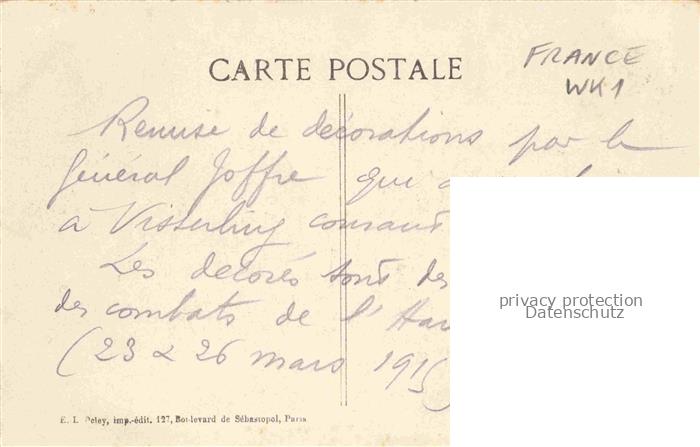 CARTE POSTALE
FRANCE
WK1
Remise de décorations par le
Général Joffre qui a
à Visserling courant
Les décorés sont des
des combats de l'Har
(23 & 26 mars 1915
privacy protection
Datenschutz
E. L. Deley, imp.-édit. 127, Boulevard de Sébastopol, Paris